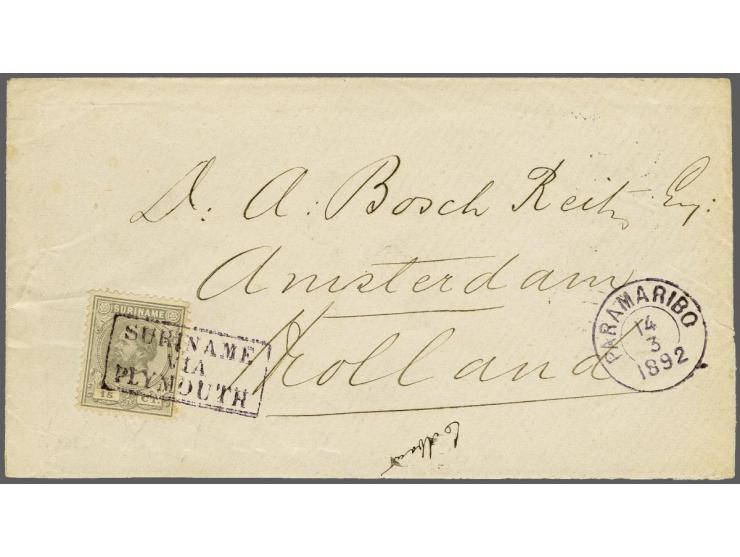 D. A. Bosch Reitz Esq:
Amsterdam
Holland
SURINAME
15 CT.
SURINAME
VIA
PLYMOUTH
PARAMARIBO
14
3
1892